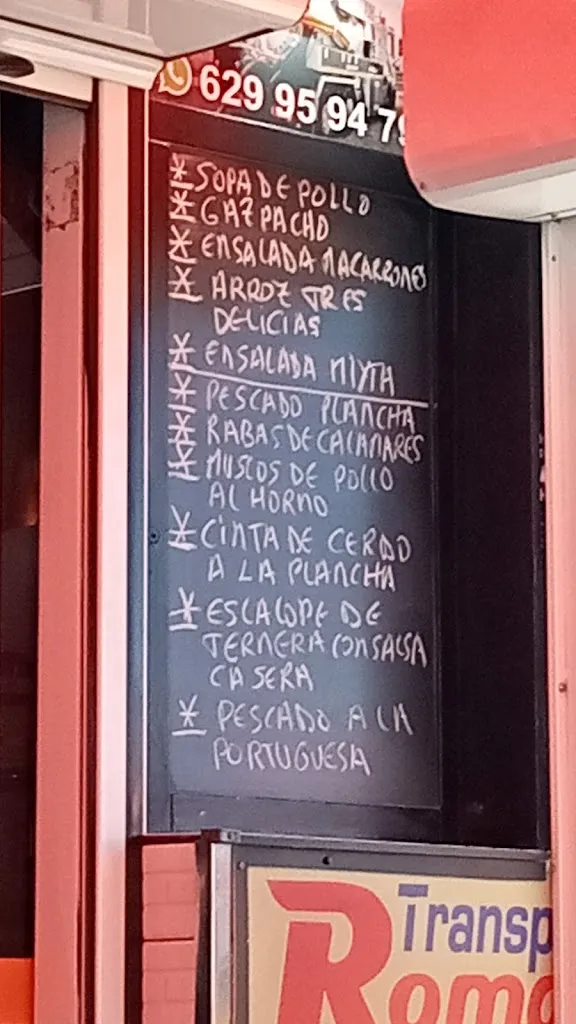 629 95 94 79
* SOPA DE POLLO
* GAZPACHO
* ENSALADA MACARRONES
* ARROZ TRES
DELICIAS
* ENSALADA MIXTA
* PESCADO PLANCHA
* RABAS DE CALAMARES
* MUSLOS DE POLLO
AL HORNO
* CINTA DE CERDO
A LA PLANCHA
* ESCALOPE DE
TERNERA CON SALSA
CASERA
* PESCADO A LA
PORTUGUESA
Transp
Rom